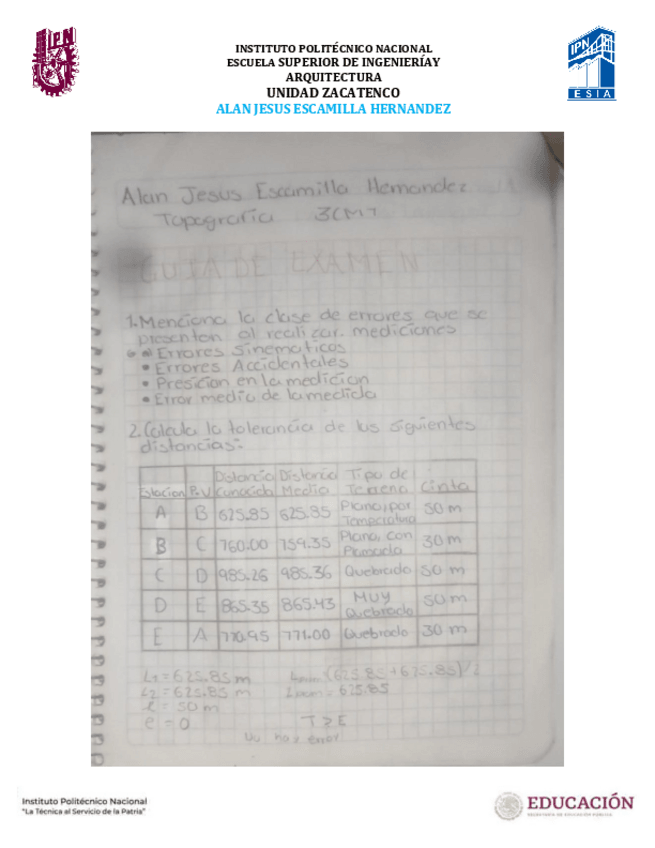 IPN
INSTITUTO POLITÉCNICO NACIONAL
ESCUELA SUPERIOR DE INGENIERÍAY
ARQUITECTURA
UNIDAD ZACATENCO
ALAN JESUS ESCAMILLA HERNANDEZ
IPN
ESIA
Alan Jesus Escamilla Hernandez
Topografia 3CM1
GUIA DE EXAMEN
1. Menciona la clase de errores que se
presentan al realizar mediciones
a) Errores Sinematicos
• Errores Accidentales
• Presicion en la medicion
• Error medio de la medida
2. Calcula la tolerancia de los siguientes
distancias:
Estacion P.V Distancia Conocida Distancia Media Tipo de Terreno Cinta
A B 625.85 625.85 Plano, por Temperatura 50 m
B C 760.00 759.35 Plano, con Plomada 30 m
C D 985.26 985.36 Quebrado 50 m
D E 865.35 865.43 Muy Quebrado 50 m
E A 770.95 771.00 Quebrado 30 m
L1 = 625.85 m (625.85 + 625.85)/2
L2 = 625.85 m = 625.85
l = 50 m
e = 0 T ≥ E
No hay error
Instituto Politécnico Nacional
"La Técnica al Servicio de la Patria"
EDUCACIÓN
SECRETARÍA DE EDUCACIÓN PÚBLICA